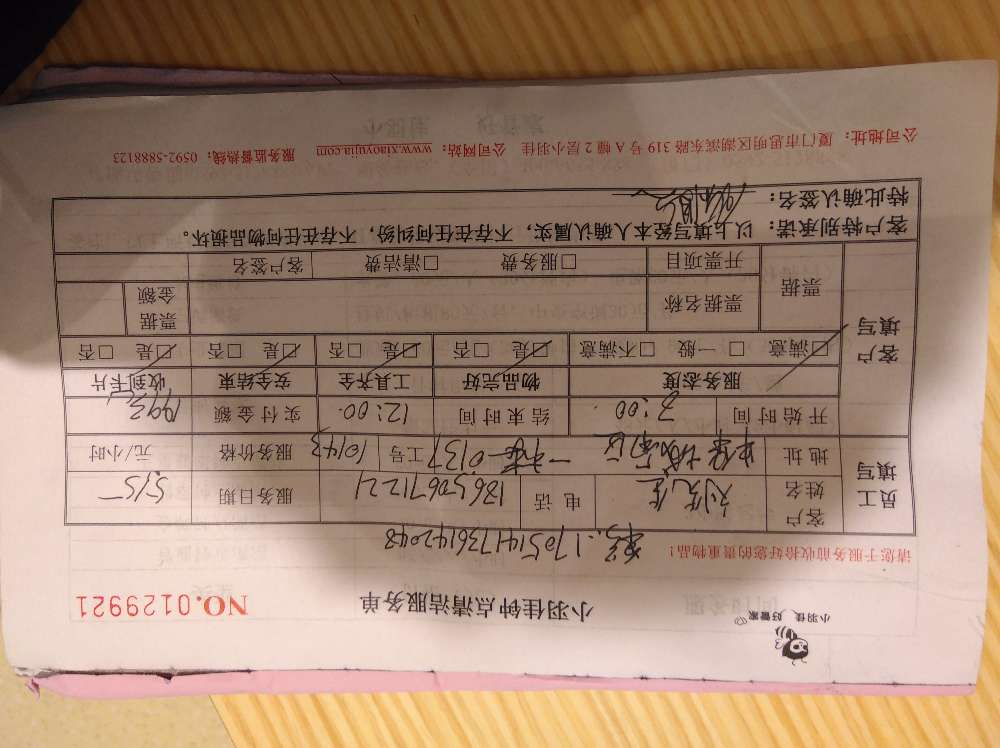 小羽佳 好管家
小羽佳钟点清洁服务单 NO.0129921
请您于服务前收拾好您的贵重物品! 1705141736142048
员工填写 客户姓名 刘先生 电话 18650671221 服务日期 5.15
地址 一楼0137 工号 10143 服务价格 元/小时
客户填写 开始时间 :00 结束时间 12:00 实付金额
服务态度 物品完好 工具齐全 安全结束 收到卡片
☑满意 □一般 □不满意 ☑是 □否 ☑是 □否 ☑是 □否 ☑是 □否
票据 票据名称 票据金额
开票项目 □服务费 □清洁费 客户签名
客户特别承诺:以上填写经本人确认属实,不存在任何纠纷,不存在任何物品损坏。
特此确认签名:
公司地址:厦门市思明区湖滨东路 319 号 A 幢 2 层小羽佳 公司网站:www.xiaoyujia.com 服务监督热线:0592-5888123